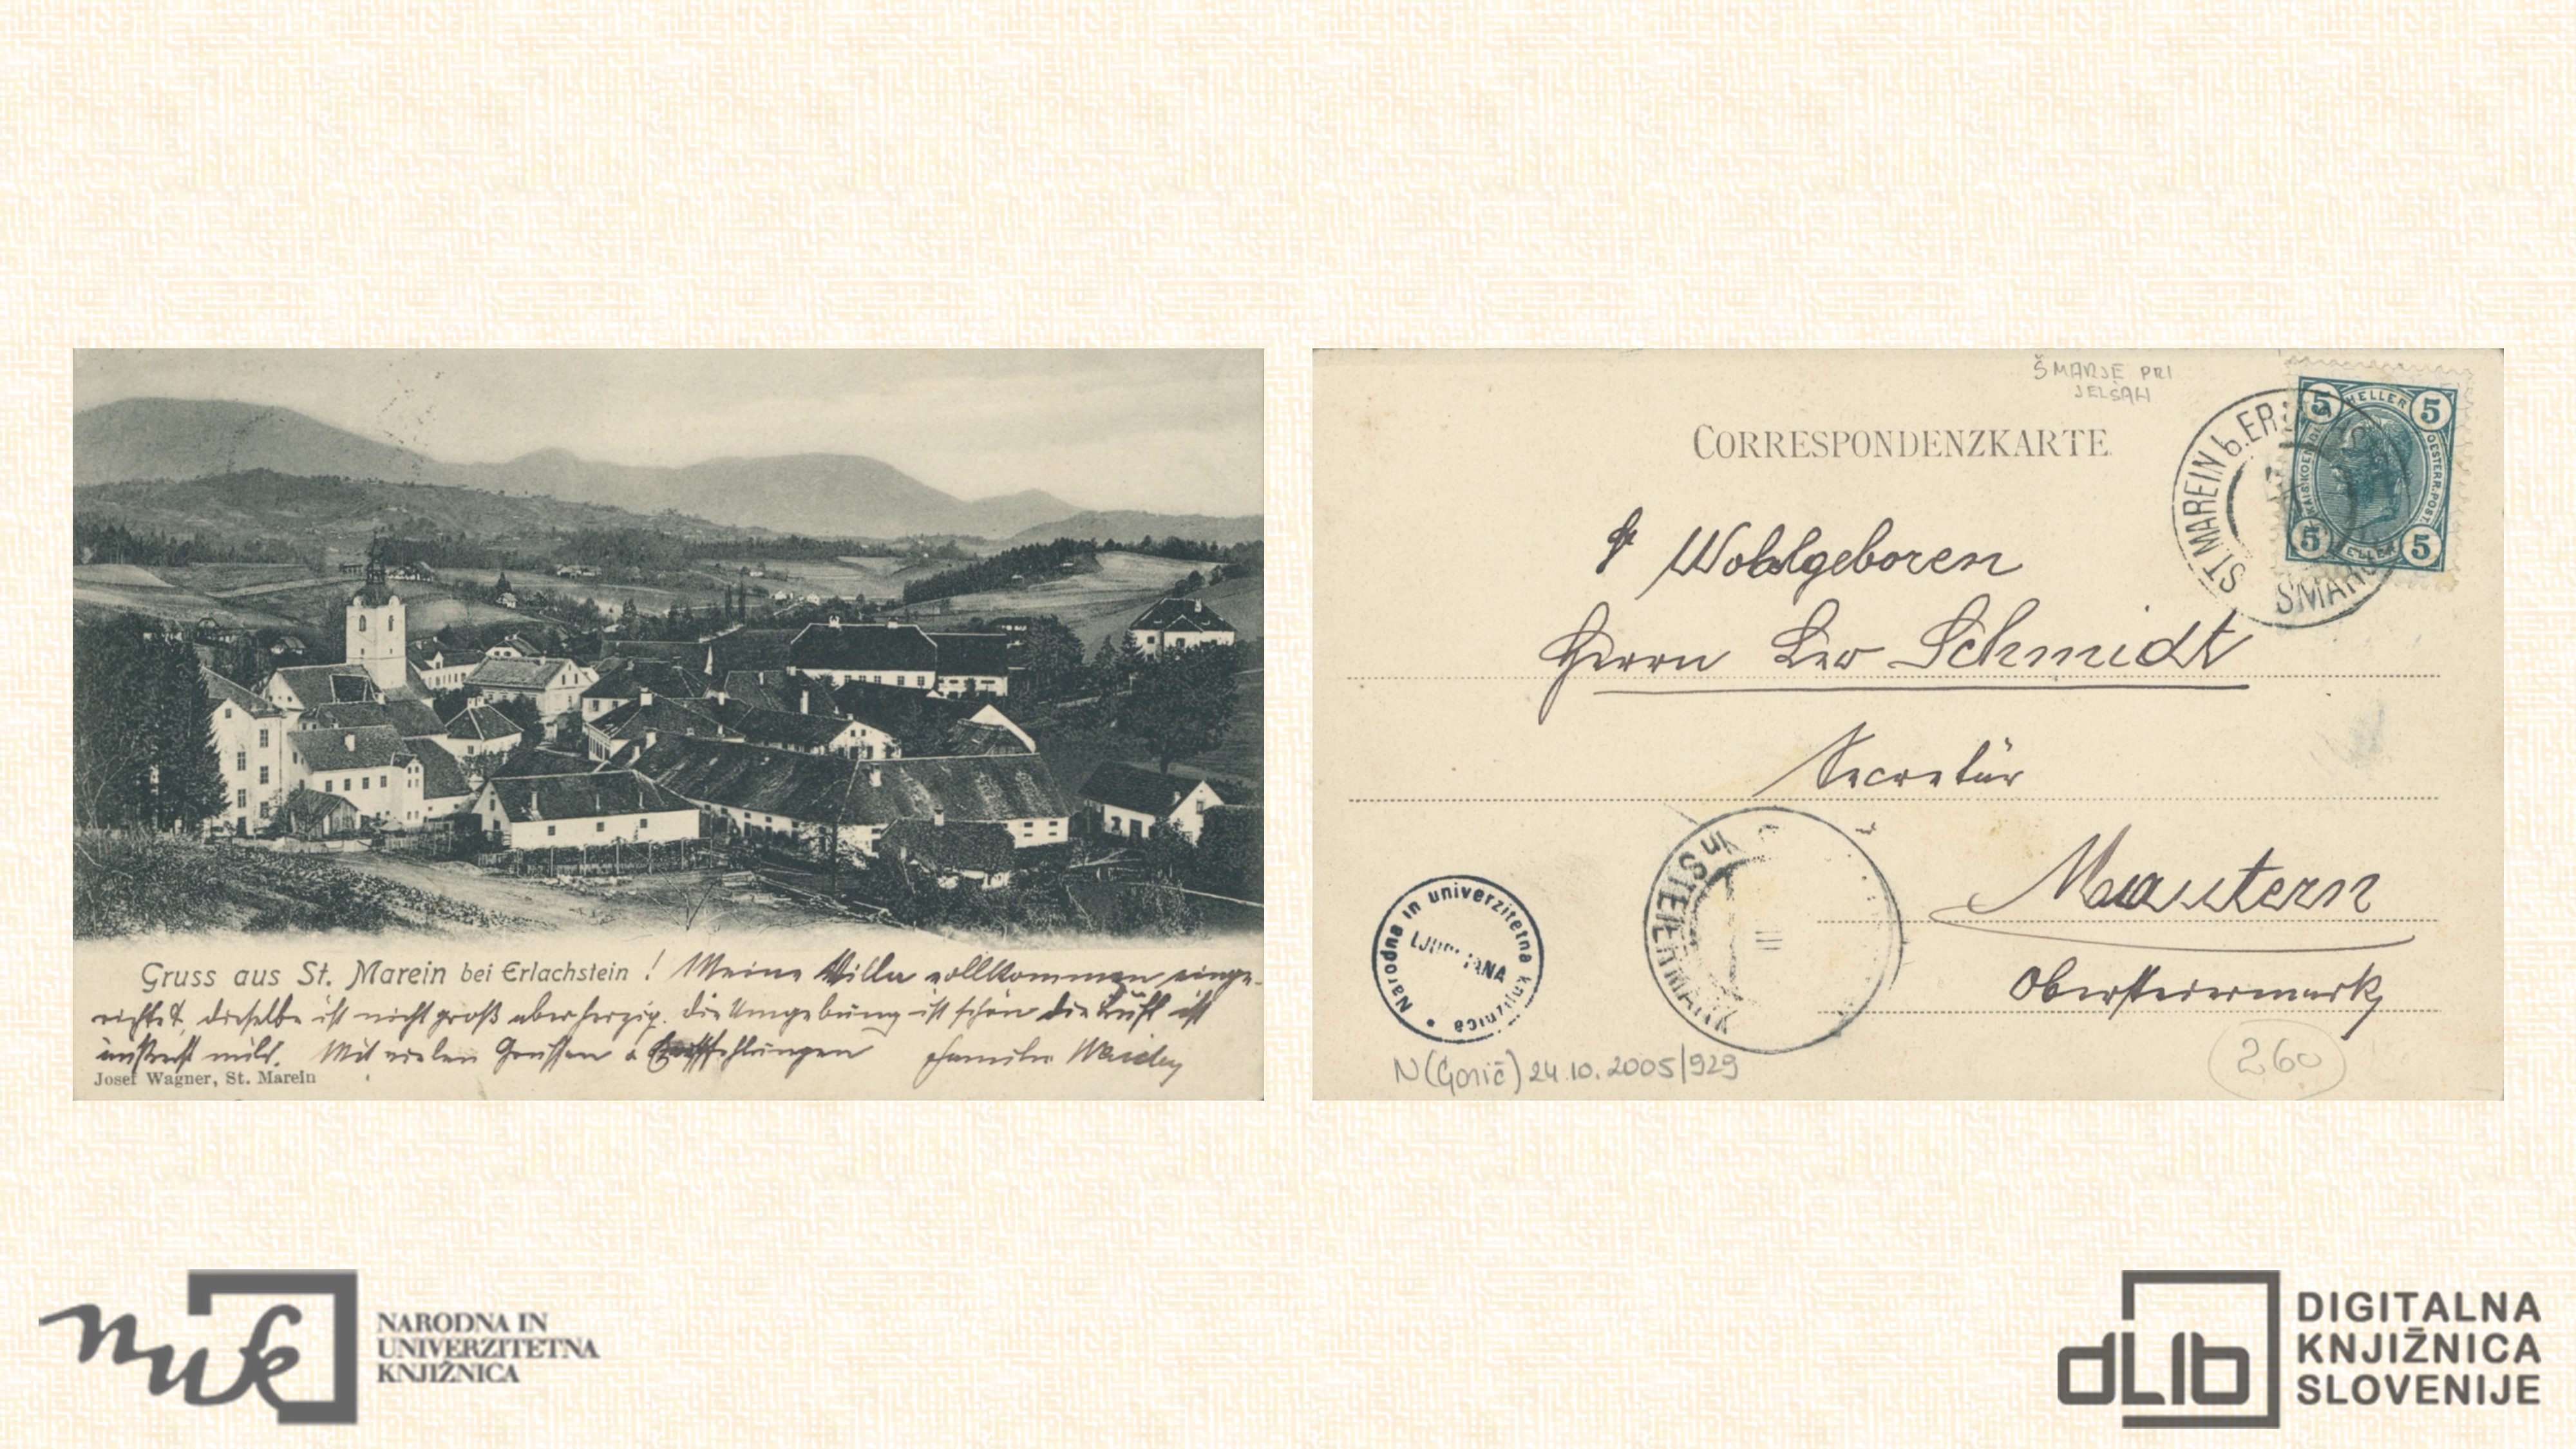 Gruss aus St. Marein bei Erlachstein! Meine Villa vollkommen einge-
richtet, dieselbe ist nicht groß aber herzig. die Umgebung ist schön die Luft ist
äußerst mild. Mit vielen Grüssen u Empfehlungen Familie
Josef Wagner, St. Marein
ŠMARJE PRI
JELŠAH
CORRESPONDENZKARTE
5 HELLER 5
KAIS. KOEN. OESTERR. POST
5 HELLER 5
ST MAREIN b. ER
ŠMARJ
Wohlgeboren
Herrn Leo Schmidt
Secretär
Mautern
Obersteiermark
in STEIERMARK
Narodna in univerzitetna knjižnica
LJUBLJANA
N(Gorič) 24.10.2005/929
260
nuk
NARODNA IN
UNIVERZITETNA
KNJIŽNICA
dLib
DIGITALNA
KNJIŽNICA
SLOVENIJE